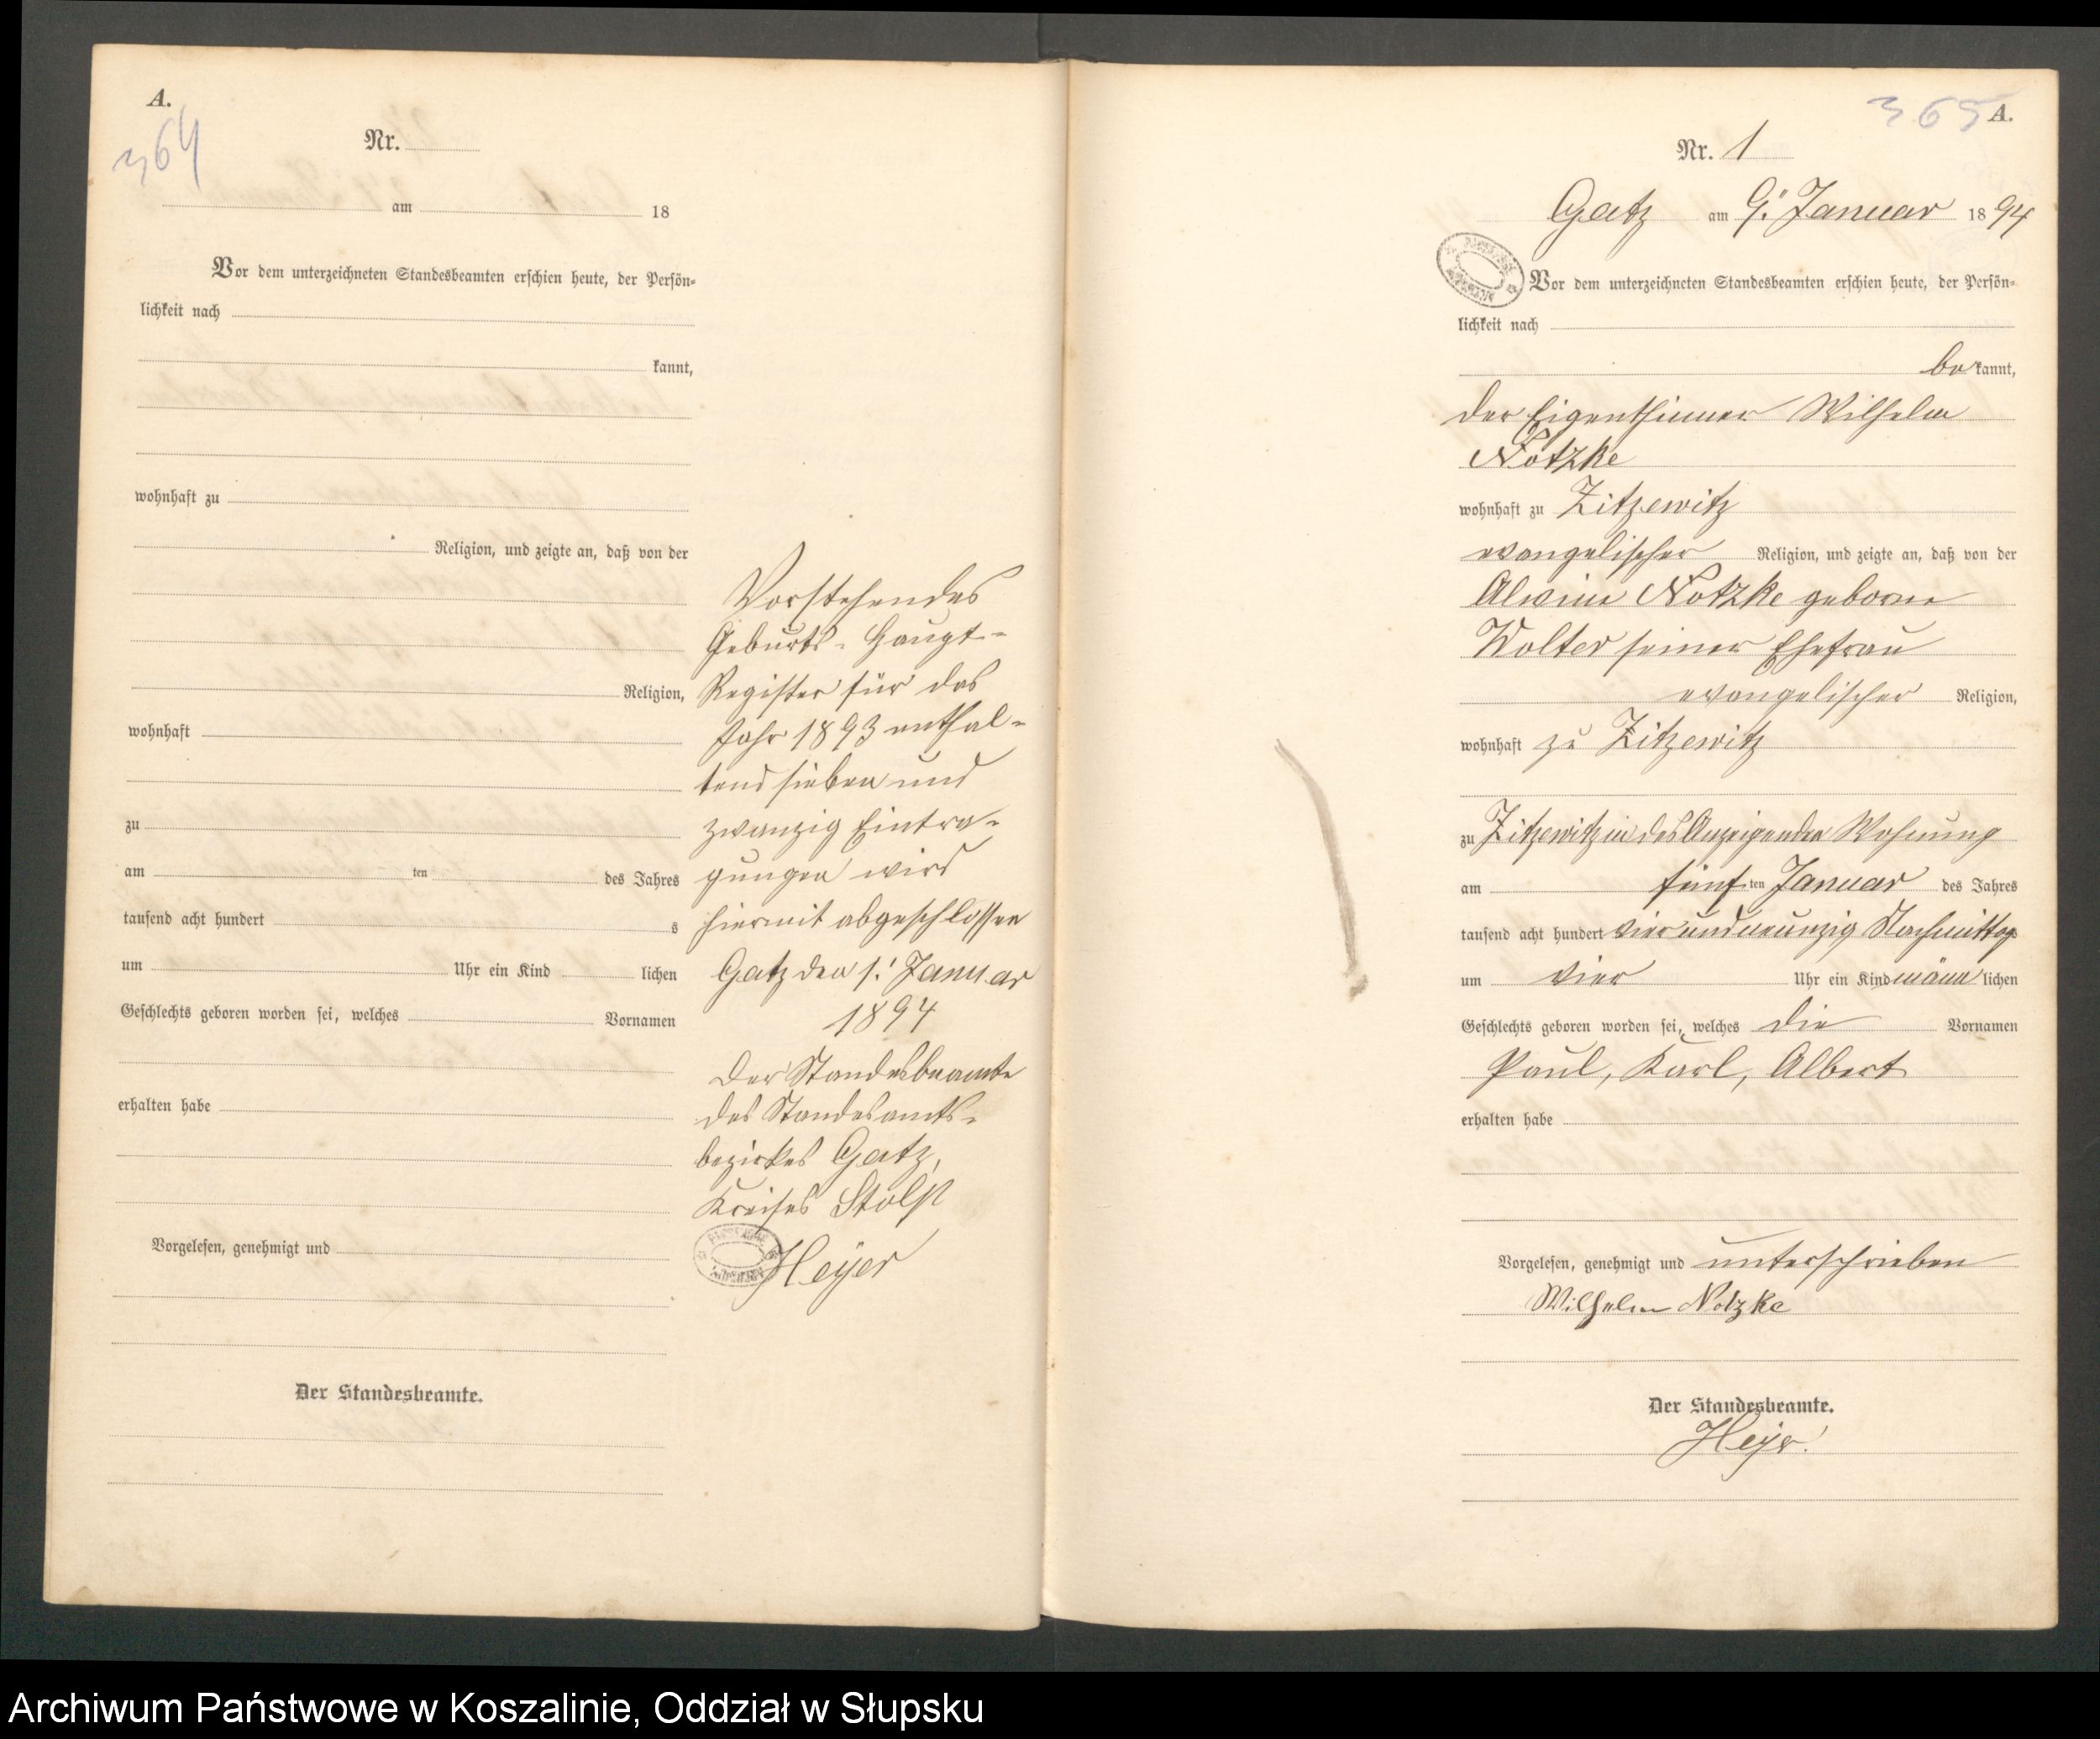 A.
364
Nr.
am 18
Vor dem unterzeichneten Standesbeamten erschien heute, der Persön-
lichkeit nach
kannt,
wohnhaft zu
Religion, und zeigte an, daß von der
Religion,
wohnhaft
zu
am ten des Jahres
tausend acht hundert s
um Uhr ein Kind lichen
Geschlechts geboren worden sei, welches Vornamen
erhalten habe
Vorgelesen, genehmigt und
Der Standesbeamte.
Vorstehendes
Geburts-Haupt-
Register für das
Jahr 1893 enthal-
tend sieben und
zwanzig Eintra-
gungen wird
hiermit abgeschlossen
Gatz den 1. Januar
1894
Der Standesbeamte
des Standesamts-
bezirkes Gatz,
Kreises Stolp
Heyer
365 A.
Nr. 1
Gatz am 9. Januar 1894
Vor dem unterzeichneten Standesbeamten erschien heute, der Persön-
lichkeit nach
bekannt,
der Eigenthümer Wilhelm
Notzke
wohnhaft zu Zitzewitz
evangelischer Religion, und zeigte an, daß von der
Alwine Notzke geborne
Wolter seiner Ehefrau
evangelischer Religion,
wohnhaft zu Zitzewitz
zu Zitzewitz in des Anzeigenden Wohnung
am fünften Januar des Jahres
tausend acht hundert vier und neunzig Nachmittags
um vier Uhr ein Kind männlichen
Geschlechts geboren worden sei, welches die Vornamen
Paul, Karl, Albert
erhalten habe
Vorgelesen, genehmigt und unterschrieben
Wilhelm Notzke
Der Standesbeamte.
Heyer
Archiwum Państwowe w Koszalinie, Oddział w Słupsku